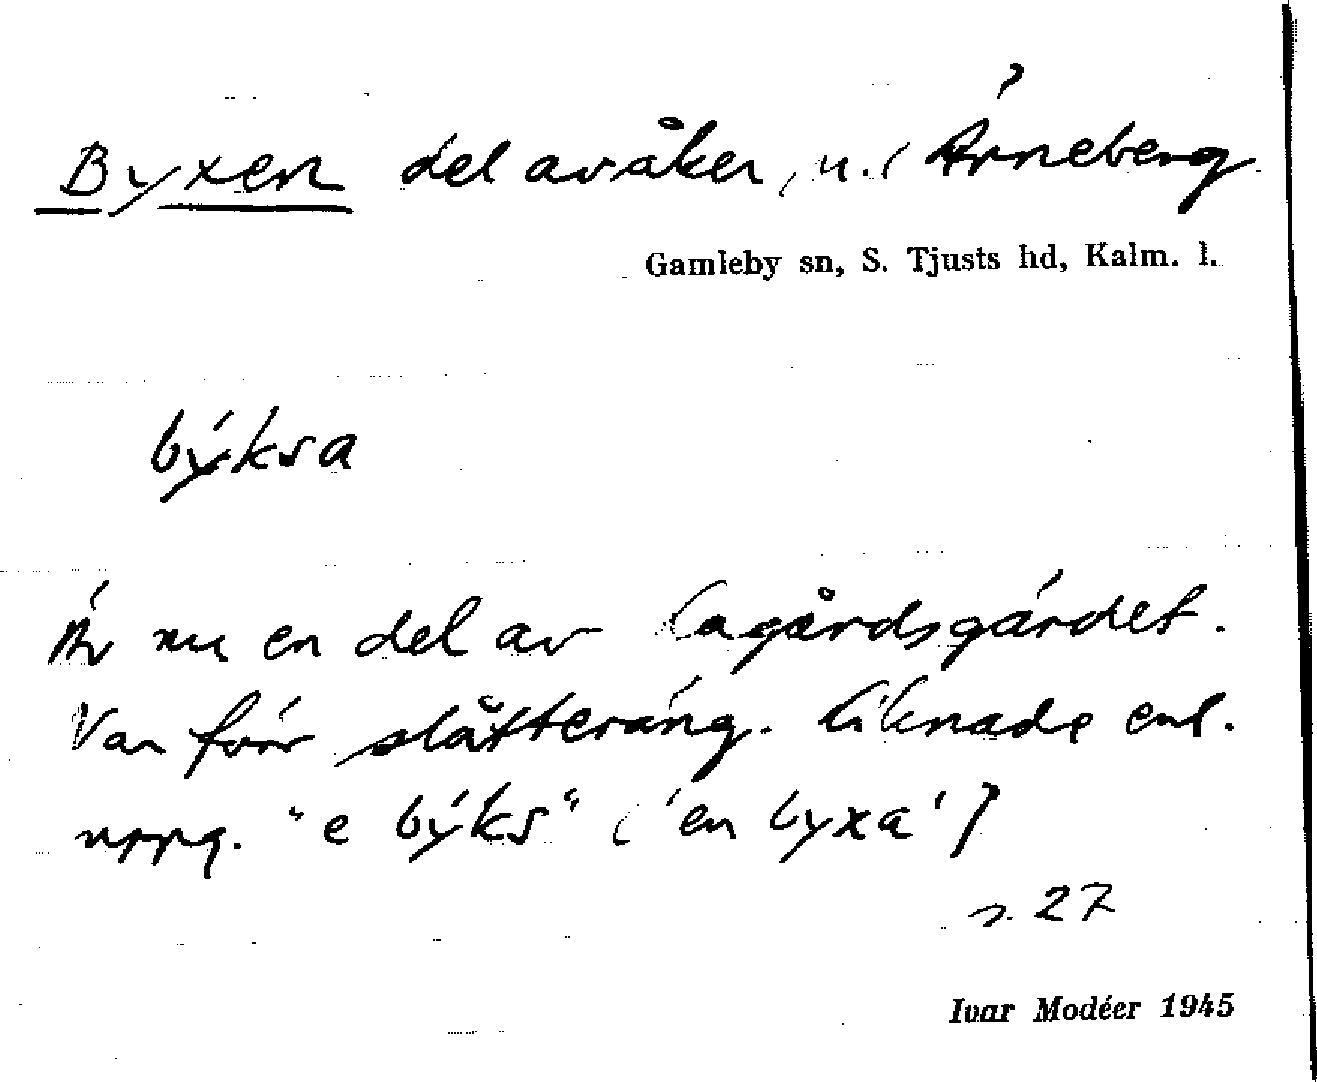 Byxen del av åker, u. Ärneberg
Gamleby sn, S. Tjusts hd, Kalm. l.
býksa
Är nu en del av lagårdsgärdet.
Var förr slåtteräng. Liknade enl.
uppg. "e býks" ('en byxa')
s. 27
Ivar Modéer 1945